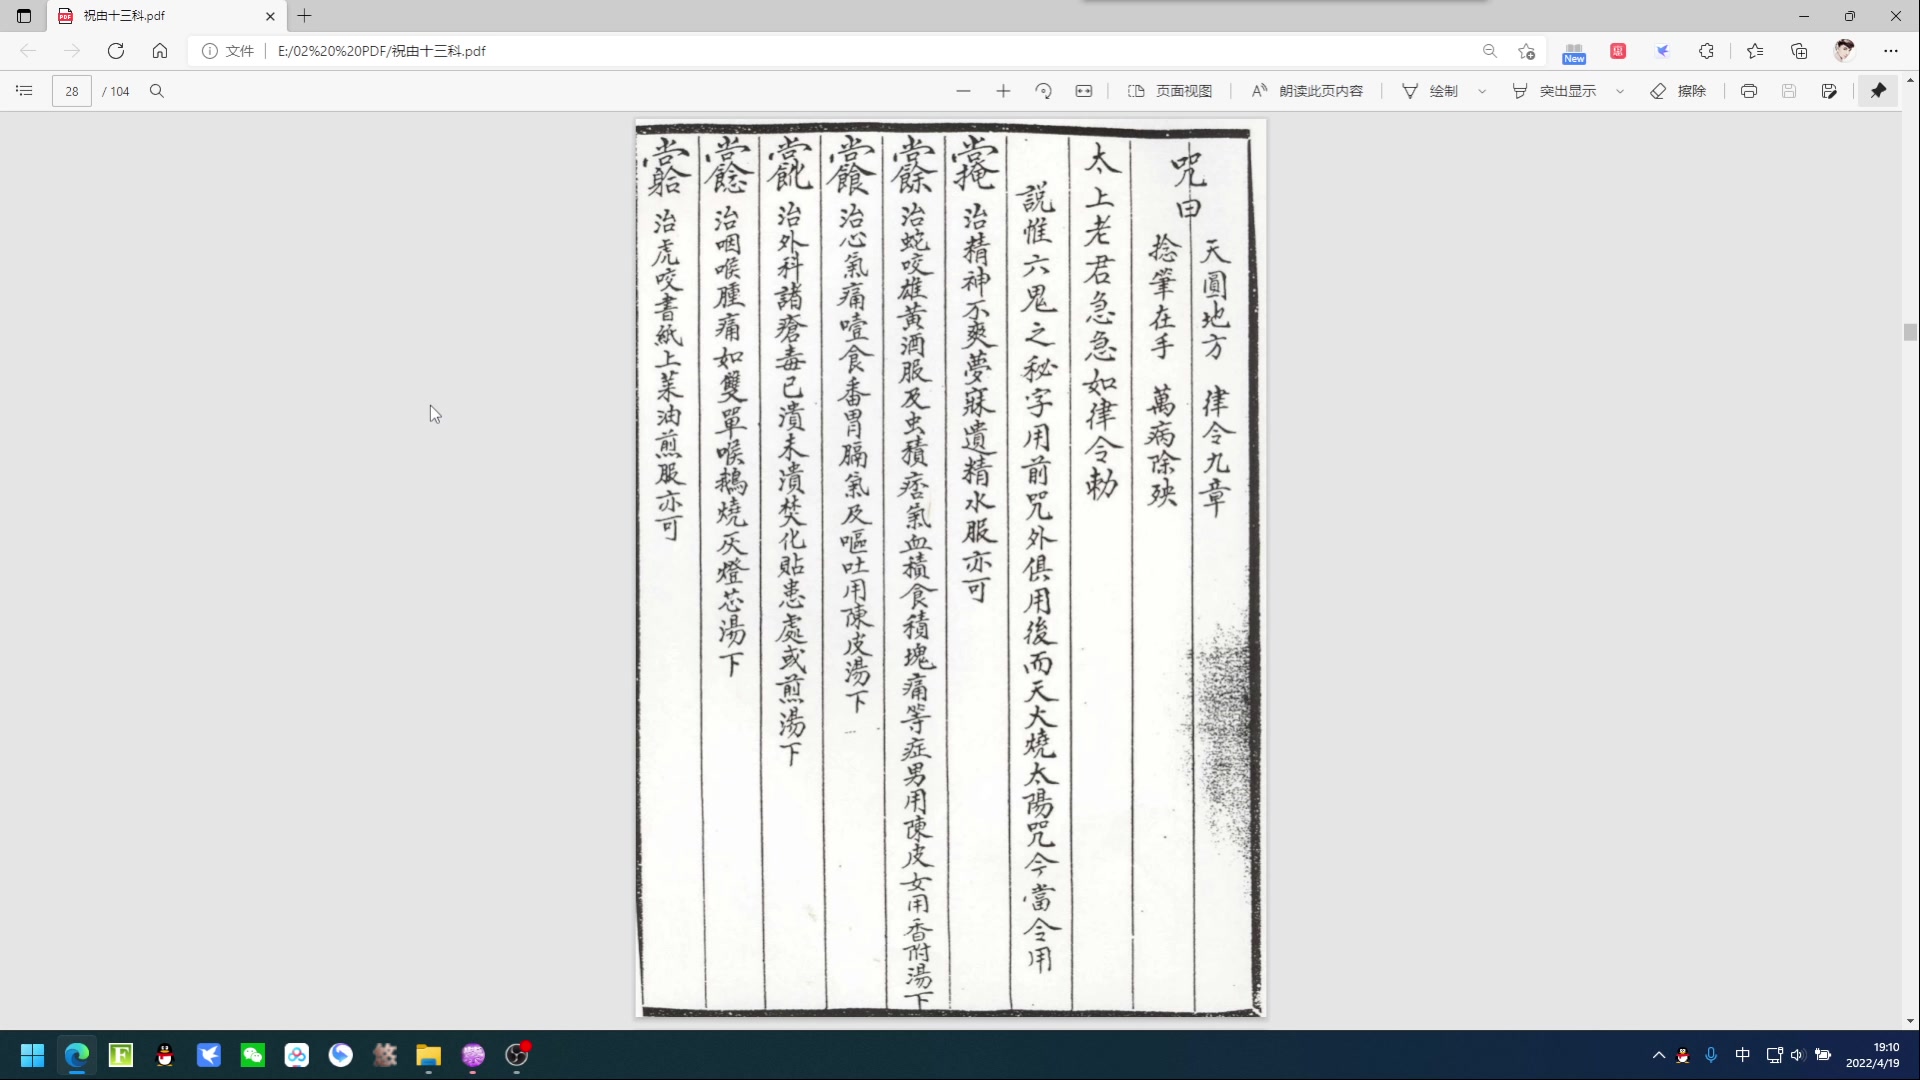 祝由十三科.pdf
文件
E:/02%20%20PDF/祝由十三科.pdf
New
28 / 104
页面视图
朗读此页内容
绘制
突出显示
擦除
咒曰
天圓地方 律令九章
捻筆在手 萬病除殃
太上老君急急如律令勅
説惟六鬼之秘字用前咒外俱用後而天大燒太陽咒今當令用
治精神不爽夢寐遺精水服亦可
治蛇咬雄黃酒服及虫積痞氣血積食積塊痛等症男用陳皮女用香附湯下
治心氣痛噎食番胃膈氣及嘔吐用陳皮湯下
治外科諸瘡毒已潰未潰焚化貼患處或煎湯下
治咽喉腫痛如雙單喉鵝燒灰燈芯湯下
治虎咬書紙上菜油煎服亦可
中
19:10
2022/4/19